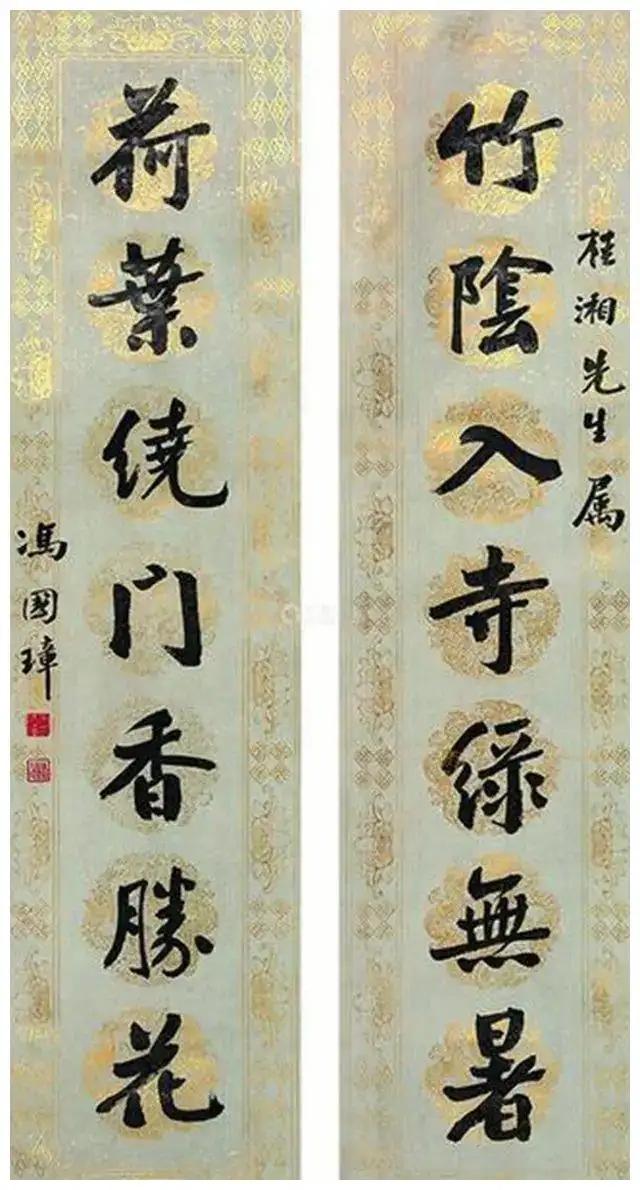 桂湘先生属
竹陰入寺綠無暑
荷葉繞门香勝花
馮國璋